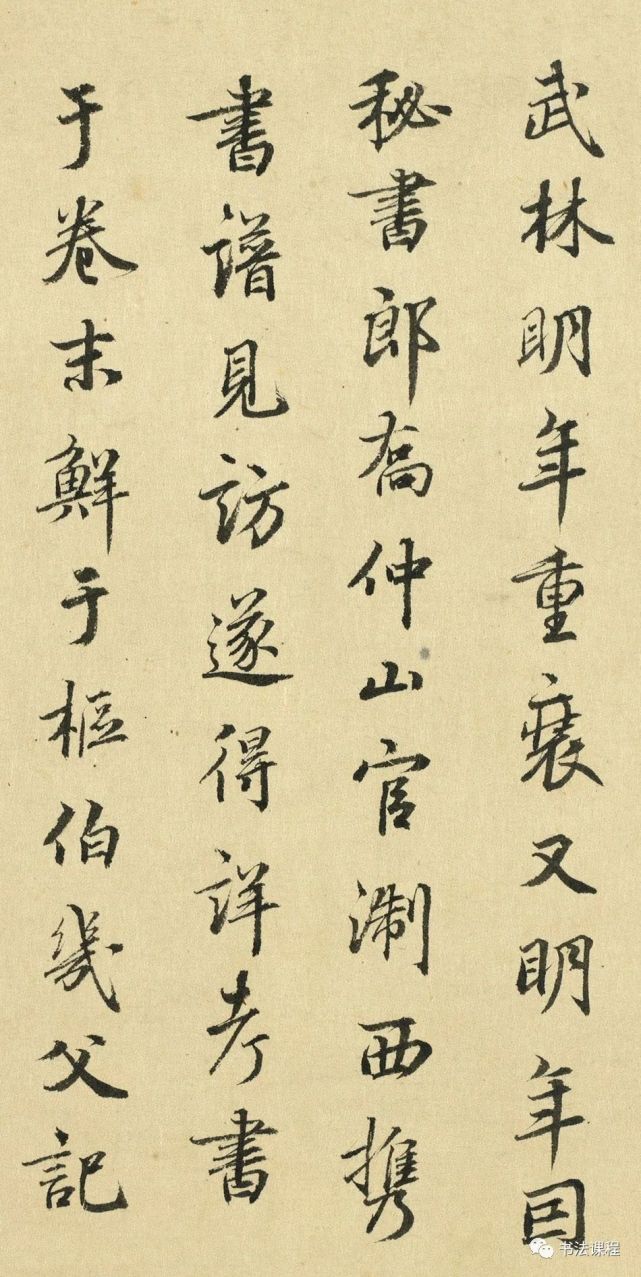 武林明年重裝又明年因
秘書郎喬仲山官淛西携
書譜見訪遂得詳考書
于卷末鮮于樞伯幾父記
书法课程